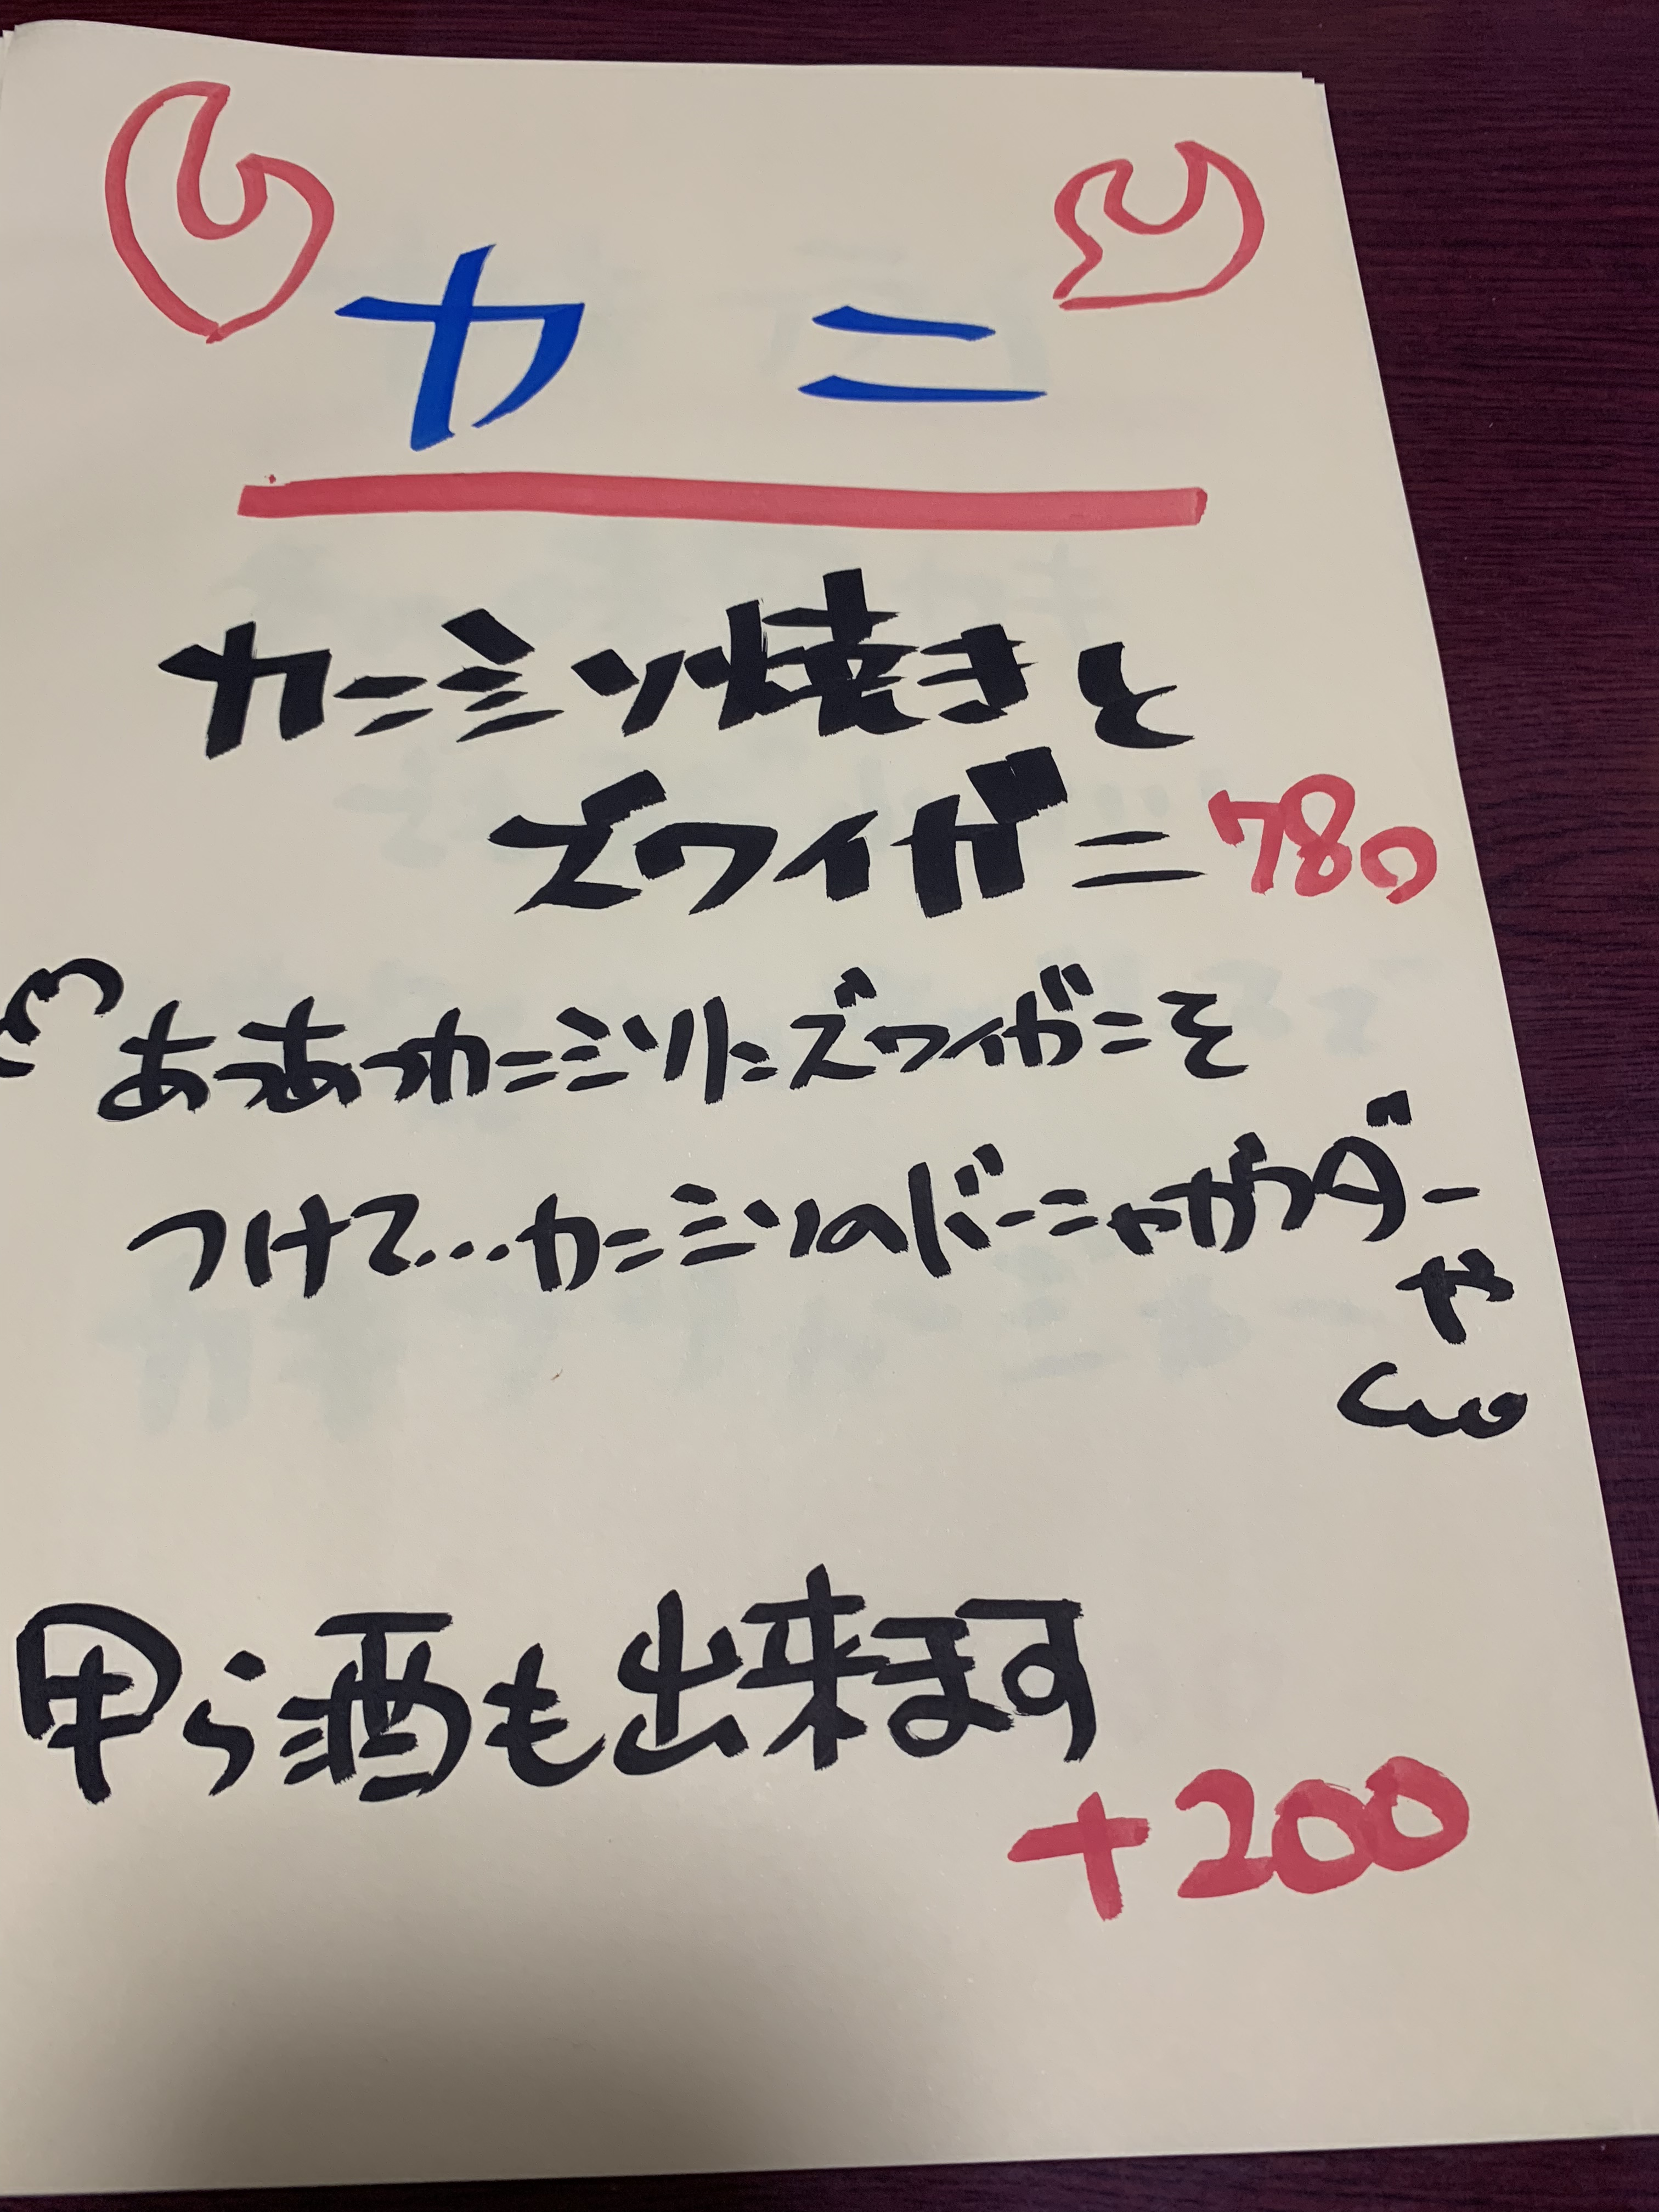 カニ
カニミソ焼きと
ズワイガニ 780
あつあつカニミソにズワイガニを
つけて…カニミソのバーニャカウダー
や
甲ら酒も出来ます
+200